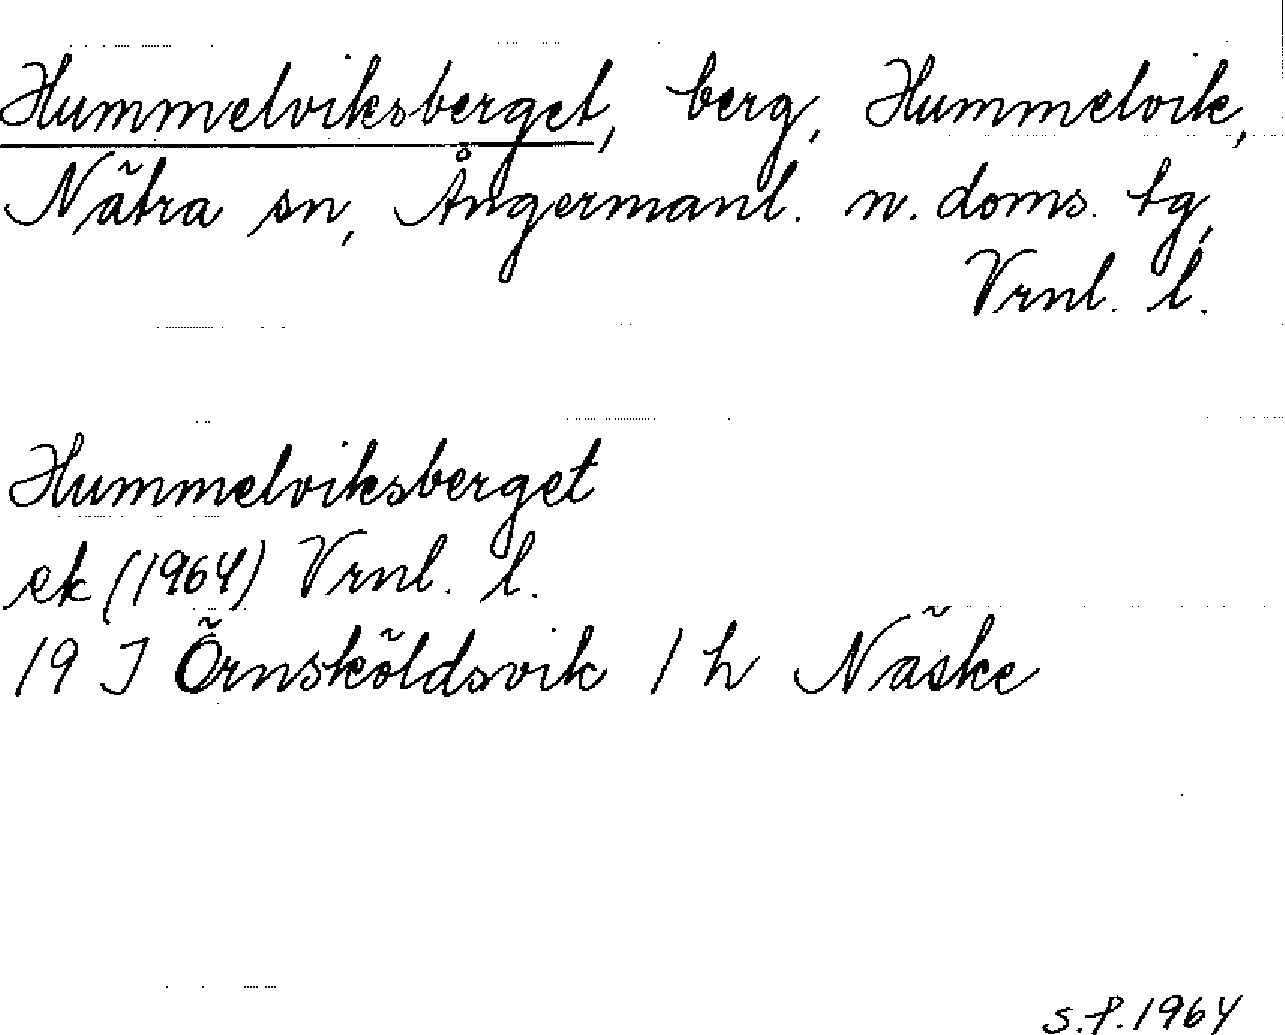 Hummelviksberget, berg, Hummelvik,
Nätra sn, Ångermanl. n. doms. tg,
Vrnl. l.
Hummelviksberget
ek (1964) Vrnl. l.
19 J Örnsköldsvik 1 h Näske
s.f. 1964